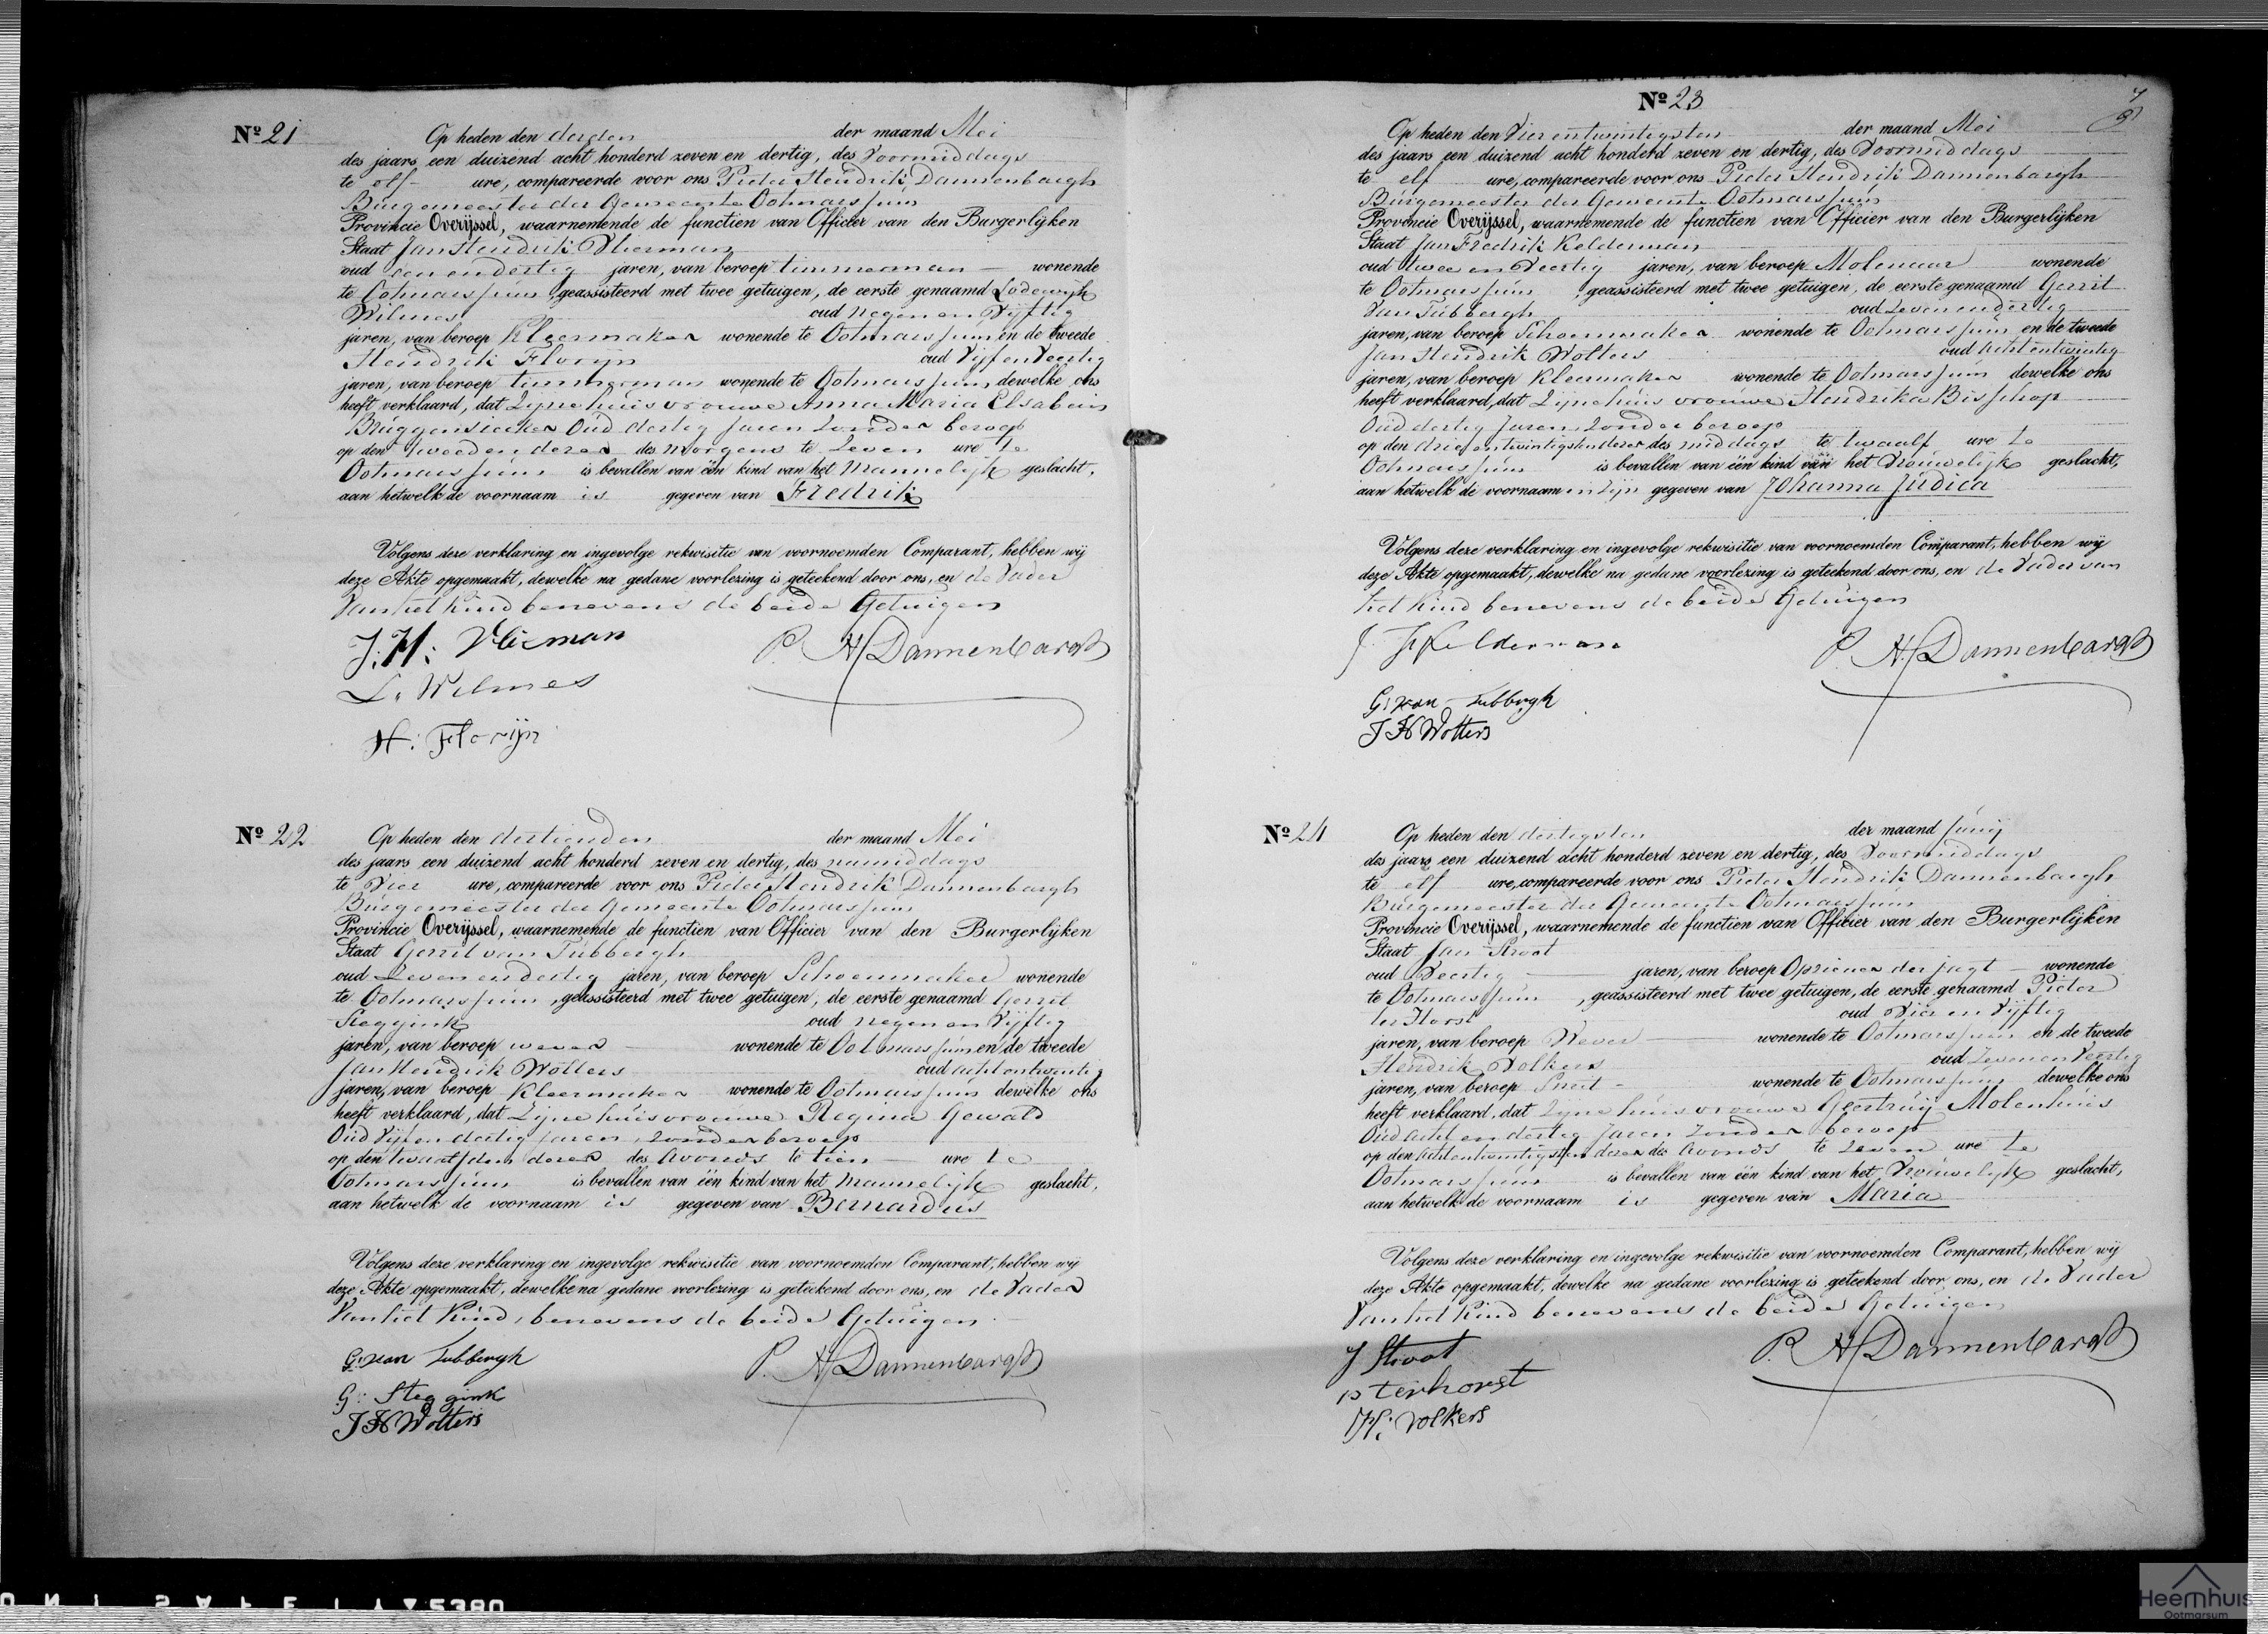 Nº 21
Op heden den derden der maand Mei
des jaars een duizend acht honderd zeven en dertig, des Voormiddags
te elf ure, compareerde voor ons Pieter Hendrik Dannenbargh
Burgemeester der Gemeente Ootmarssum
Provincie Overijssel, waarnemende de functien van Officier van den Burgerlijken
Staat Jan Hendrik Vlierman
oud een en dertig jaren, van beroep timmerman wonende
te Ootmarssum, geassisteerd met twee getuigen, de eerste genaamd Lodewijk
Wilmes oud negen en Vijftig
jaren, van beroep Kleermaker wonende te Ootmarssum en de tweede
Hendrik Florijn oud Vijf en Veertig
jaren, van beroep timmerman wonende te Ootmarssum dewelke ons
heeft verklaard, dat Zijne huisvrouwe Anna Maria Elsabein
Oud dertig Jaren Zonder beroep
op den tweeden dezer des morgens te Zeven ure te
Ootmarssum is bevallen van één kind van het Mannelijk geslacht,
aan hetwelk de voornaam is gegeven van Fredrik
Volgens deze verklaring en ingevolge rekwisitie van voornoemden Comparant, hebben wij
deze Akte opgemaakt, dewelke na gedane voorlezing is geteekend door ons, en de Vader
Van het Kind benevens de beide Getuigen
J: H: Vlierman P. H. Dannenbargh
L. Wilmes
H: Florijn
Nº 22
Op heden den dertienden der maand Mei
des jaars een duizend acht honderd zeven en dertig, des namiddags
te Vier ure, compareerde voor ons Pieter Hendrik Dannenbargh
Burgemeester der Gemeente Ootmarssum
Provincie Overijssel, waarnemende de functien van Officier van den Burgerlijken
Staat Gerrit van Tubbergh
oud Zeven en dertig jaren, van beroep Schoenmaker wonende
te Ootmarssum, geassisteerd met twee getuigen, de eerste genaamd Gerrit
Steggink oud negen en Vijftig
jaren, van beroep wever wonende te Ootmarssum en de tweede
Jan Hendrik Wolters oud acht en twintig
jaren, van beroep Kleermaker wonende te Ootmarssum dewelke ons
heeft verklaard, dat Zijne huisvrouwe Regina Gewald
Oud Vijf en dertig Jaren, zonder beroep
op den twaalfden dezer des Avonds te tien ure te
Ootmarssum is bevallen van één kind van het Mannelijk geslacht,
aan hetwelk de voornaam is gegeven van Bernardus
Volgens deze verklaring en ingevolge rekwisitie van voornoemden Comparant, hebben wij
deze Akte opgemaakt, dewelke na gedane voorlezing is geteekend door ons, en de Vader
Van het Kind, benevens de beide Getuigen
G: van Tubbergh P. H. Dannenbargh
G: Steggink
J H Wolters
Nº 23
Op heden den Vier en twintigsten der maand Mei
des jaars een duizend acht honderd zeven en dertig, des Voormiddags
te elf ure, compareerde voor ons Pieter Hendrik Dannenbargh
Burgemeester der Gemeente Ootmarssum
Provincie Overijssel, waarnemende de functien van Officier van den Burgerlijken
Staat Jan Fredrik Kelderman
oud twee en Veertig jaren, van beroep Molenaar wonende
te Ootmarssum, geassisteerd met twee getuigen, de eerste genaamd Gerrit
Van Tubbergh oud Zeven en dertig
jaren, van beroep Schoenmaker wonende te Ootmarssum en de tweede
Jan Hendrik Wolters oud Acht en twintig
jaren, van beroep Kleermaker wonende te Ootmarssum dewelke ons
heeft verklaard, dat Zijne huisvrouwe Hendrika Bisschop
Oud dertig Jaren, Zonder beroep
op den drie en twintigsten dezer des middags te twaalf ure te
Ootmarssum is bevallen van één kind van het Vrouwelijk geslacht,
aan hetwelk de voornaamen zijn gegeven van Johanna Judica
Volgens deze verklaring en ingevolge rekwisitie van voornoemden Comparant, hebben wij
deze Akte opgemaakt, dewelke na gedane voorlezing is geteekend door ons, en de Vader van
het Kind benevens de beide Getuigen
J. F. Kelderman P. H. Dannenbargh
G: van Tubbergh
J H Wolters
Nº 24
Op heden den dertigsten der maand Junij
des jaars een duizend acht honderd zeven en dertig, des Voormiddags
te elf ure, compareerde voor ons Pieter Hendrik Dannenbargh
Burgemeester der Gemeente Ootmarssum
Provincie Overijssel, waarnemende de functien van Officier van den Burgerlijken
Staat Jan Stroot
oud Veertig jaren, van beroep Opziener der jagt wonende
te Ootmarssum, geassisteerd met twee getuigen, de eerste genaamd Pieter
ter Horst oud Vier en Vijftig
jaren, van beroep Wever wonende te Ootmarssum en de tweede
Hendrik Volkers oud Zeven en Veertig
jaren, van beroep wonende te Ootmarssum dewelke ons
heeft verklaard, dat Zijne huisvrouwe Geertruij Molenhuis
Oud Acht en dertig Jaren Zonder beroep
op den Acht en twintigsten dezer des Avonds te Zeven ure te
Ootmarssum is bevallen van één kind van het Vrouwelijk geslacht,
aan hetwelk de voornaam is gegeven van Maria
Volgens deze verklaring en ingevolge rekwisitie van voornoemden Comparant, hebben wij
deze Akte opgemaakt, dewelke na gedane voorlezing is geteekend door ons, en de Vader
Van het Kind benevens de beide Getuigen
J Stroot P. H. Dannenbargh
p terhorst
H: Volkers
5380
Heemhuis
Ootmarsum